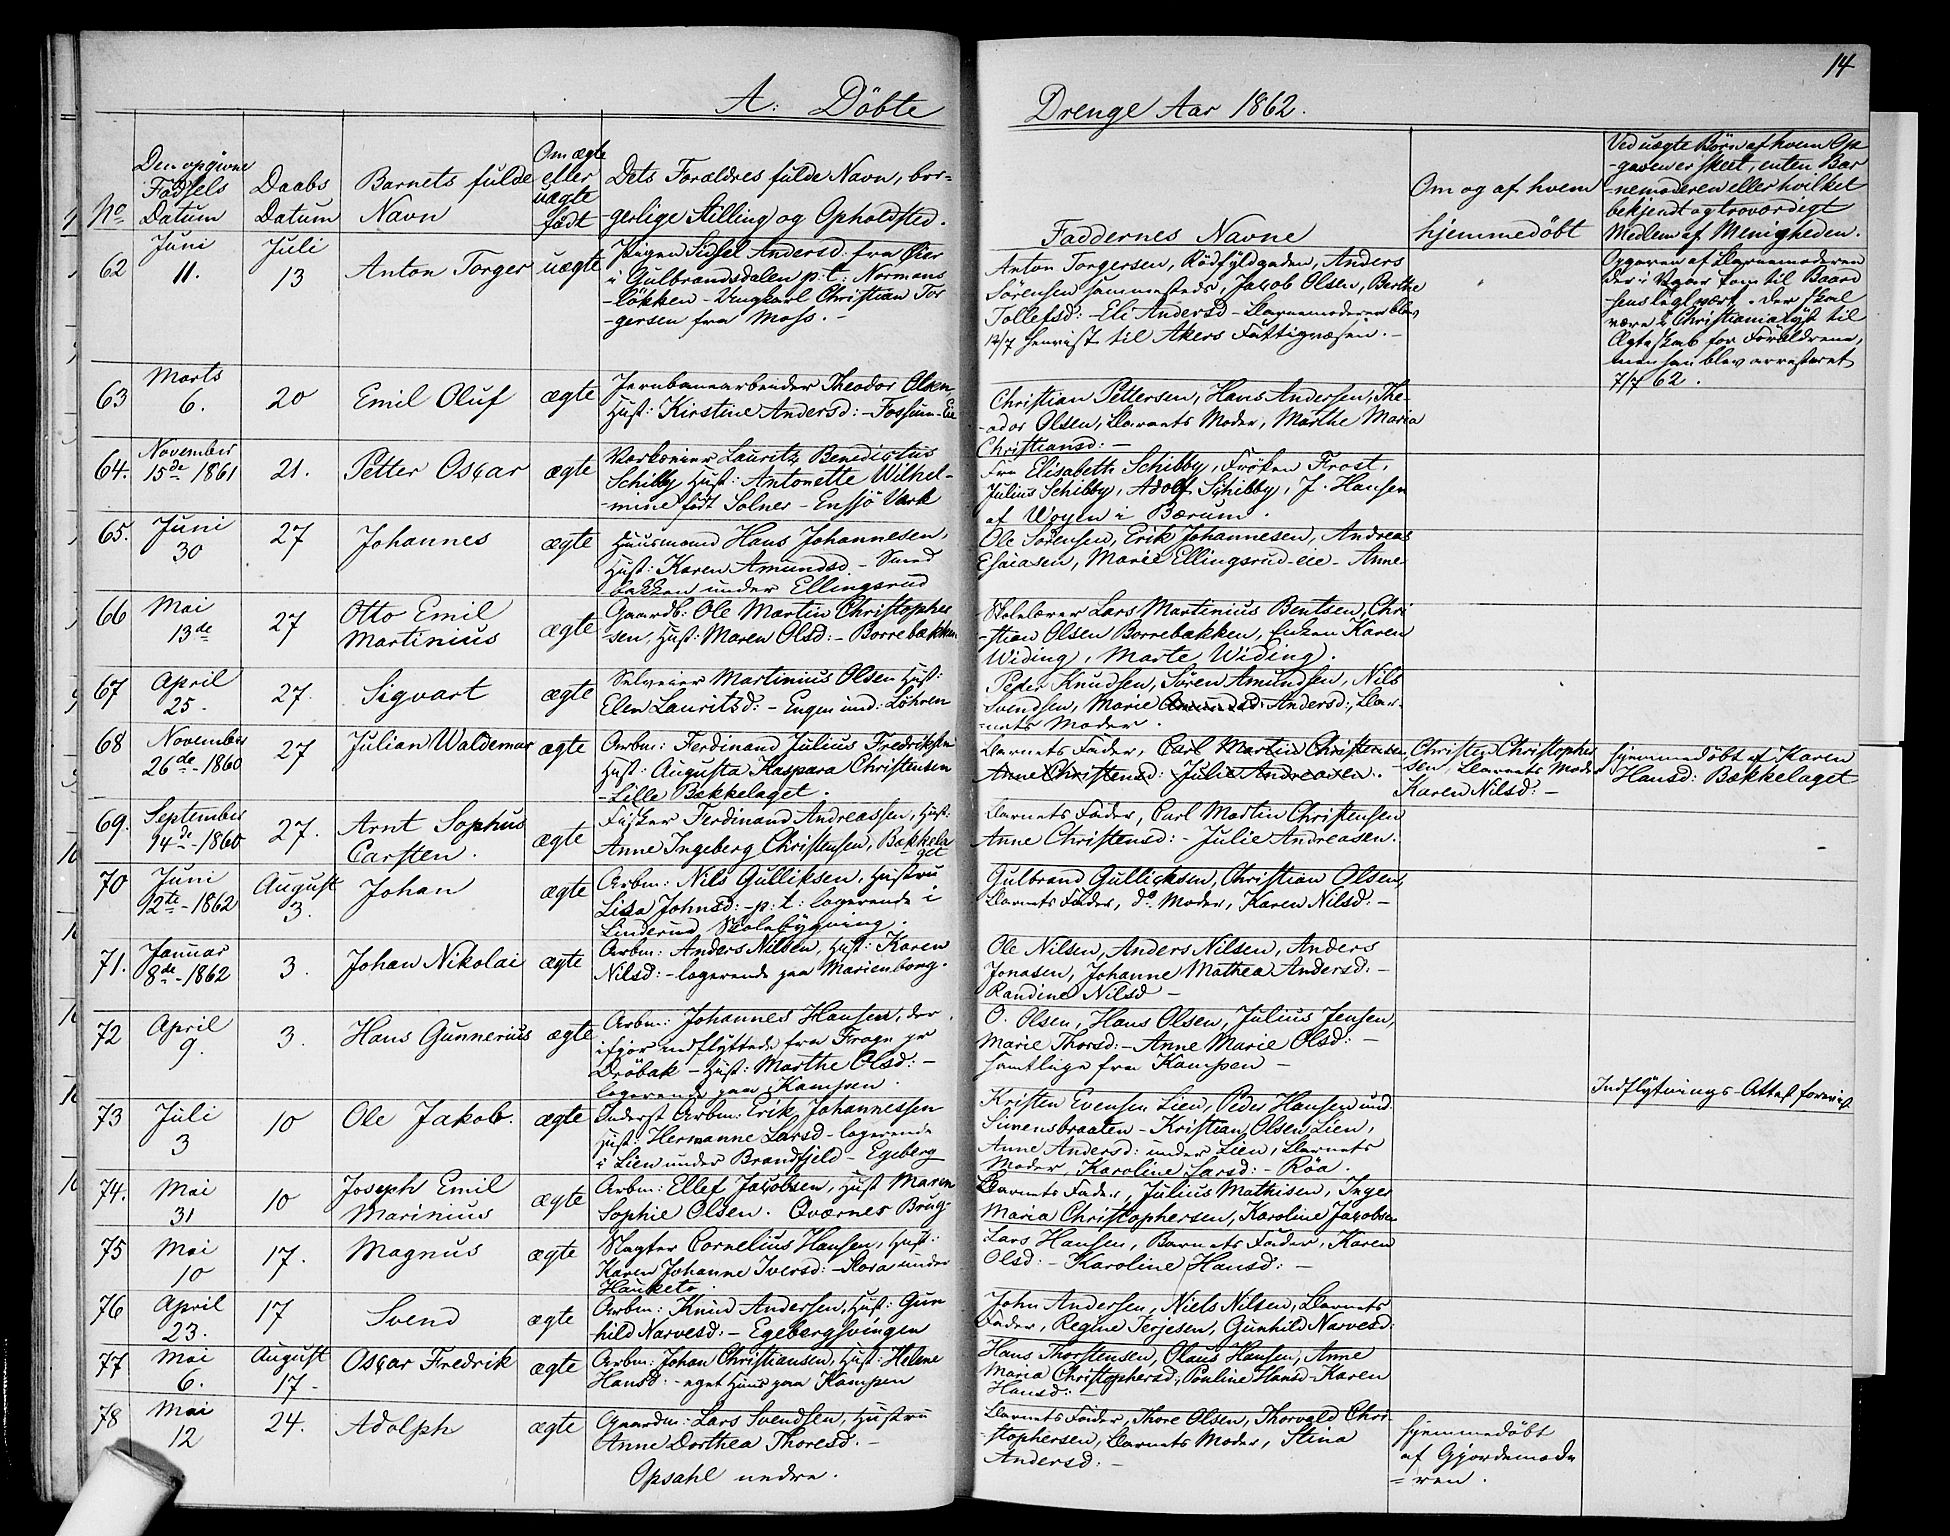 14
A. Döbte Drenge Aar 1862.
No
Den opgivne
Födsels
Datum
Daabs
Datum
Barnets fulde
Navn
Om ægte
eller
uægte
födt
Dets Forældres fulde Navn, bor-
-gerlige Stilling og Opholdsted.
Faddernes Navne
Om og af hvem
hjemmedöbt
Ved uægte Börn af hvem Op
-gaven er skeet, enten Bar
-nemoderen eller hvilket
bekjendt og troværdigt
Medlem af Menigheden.
62
Juni
11.
Juli
13
Anton Torger
uægte
Pigen Sidsel Andersd: fra Öier
i Gulbrandsdalen p.t: Normans
-lökken - Ungkarl Christian Tor
-gersen fra Moss. -
Anton Torgersen, Rödfyldgaden, Anders
Sörensen sammesteds, Jacob Olsen, Berthe
Tollefsd: - Eli Andersd - Barnemoderen blev
12/7 henvist til Akers Fattigvæsen. -
Opgaven af Barnemoderen
der i Vaar kom til Baard
være i Christiania Lyst til
Ægteskab for Forældrene,
men han blev arresteret
7/7 62.
63
Marts
6.
20
Emil Oluf
ægte
Jernbanearbeider Theodor Olsen,
Hust: Kirstine Andersd: - Fossum-Eie
Christian Pettersen, Hans Andersen, The-
-odor Olsen, Barnets Moder, Marthe Maria
Christiansd: -
64.
November
15de 1861
21.
Petter Oscar
ægte
Værkeier Lauritz Benedictus
Schibby Hust: Antonette Wilhel-
-mine födt Solner - Ensjö Værk
Fru Elisabeth Schibby, Fröken Frost,
Julius Schibby, Adolf Schibby, J. Hansen
af Wöyen i Bærum.
65.
Juni
30
27
Johannes
ægte
Huusmand Hans Johannesen,
Hust: Karen Amundsd - Smed
bakken under Ellingsrud
Ole Sörensen, Erik Johannesen, Andreas
Esaiasen, Marie Ellingsrud-eie - Anne
66
Mai
13de
27
Otto Emil
Martinius
ægte
Gaardb: Ole Martin Christophes
sen, Hust: Maren Olsd: - Borrebækken
Skolelærer Lars Martinius Bentsen, Chri
-stian Olsen Borrebækken, Enken Karen
Widing, Marte Widing.
67
April
25.
27.
Sigvart
ægte
Selveier Martinius Olsen Hust:
Elen Lauritsd: - Engen und: Löhren
Peder Knudsen, Sören Amundsen, Nils
Svendsen, Marie Amundsd: Andersd:, Bar-
-nets Moder.
68
November
26de - 1860
27
Julian Waldemar
ægte
Arbm: Ferdinand Julius Fredriksen
Hust: Augusta Kaspara Christensen
- Lille Bækkelaget.
Barnets Fader, Carl Martin Christensen
Anne Christensd: Julie Andreasen.
Christen Christophes
sen, Barnets Moder
Karen Nilsd: -
Hjemmedöbt af Karen
Hansd: Bækkelaget
69.
September
14de - 1860
27.
Arnt Sophus
Carsten.
ægte
Fisker Ferdinand Andreassen, Hust:
Anne Ingeberg Christensen, Bækkela
get
Barnets Fader, Carl Martin Christensen
Anne Christensd: - Julie Andreasen.
70
Juni
12te - 1862
August
3.
Johan
ægte
Arbm: Nils Gulliksen, Hustru
Lisa Johnsd: - p.t: logerende i
Linderud Skolebygning.
Gulbrand Gulliksen, Christian Olsen,
Barnets Fader, do Moder, Karen Nilsd: -
71.
Januar
8de - 1862
3.
Johan Nikolai
ægte
Arbm: Anders Nilsen, Hust: Karen
Nilsd: - logerende paa Marienborg.
Ole Nilsen, Anders Nilsen, Anders
Jonasen, Johanne Mathea Andersd: -
Randine Nilsd -
72
April
9.
3.
Hans Gunnerius
ægte
Arbm: Johannes Hansen, der
ifjor indflyttede fra Frogn pr
Dröbak - Hust: Marthe Olsd: -
logerende paa Kampen.
O. Olsen, Hans Olsen, Julius Jensen,
Marie Thorsd: - Anne Marie Olsd: -
samtlige fra Kampen -
Indflytnings-Attest forevist
73
Juli
3
10
Ole Jakob.
ægte
Inderst Arbm: Erik Johannessen
Hust: Hermanne Larsd - logerende
i Lien under Brandfjeld - Egeberg
Kristen Evensen Lien, Peder Hansen und
Simensbraaten - Kristian Olsen Lien,
Anne Andersd: under Lien, Barnets
Moder, Karoline Larsd: - Röa.
74.
Mai
31
10
Joseph Emil
Marinius
ægte
Arbm: Ellef Jacobsen, Hust Maren
Sophie Olsen. Qværnes Brug-
Barnets Fader, Julius Mathisen, Inger
Maria Christophersen, Karoline Jacobsen
75
Mai
10
17.
Magnus
ægte
Slagter Cornelius Hansen, Hust:
Karen Johanne Iversd: - Flora under
Hauketo
Lars Hansen, Barnets Fader, Karen
Olsd: - Karoline Hansd: -
76
April
23.
17
Svend
ægte
Arbm: Knud Andersen, Hust: Gun
hild Narvesd: - Egebergsvingen
John Andersen, Niels Nilsen, Barnets
Fader, Regine Terjesen, Gunhild Narvesd:
77
Mai
6.
August
17-
Oscar Fredrik
ægte
Arbm: Johan Christiansen, Hust: Helene
Hansd: - eget Huus paa Kampen
Hans Thorstensen, Olaus Hansen, Anne
Maria Christophersd:, Pauline Hansd - Karen
Hansd: -
78
Mai
12
24.
Adolph
ægte
Gaardm: Lars Svendsen, Hustru
Anne Dorthea Thoresd. -
Opsahl nedre.
Barnets Fader, Thore Olsen, Thorvald Chri-
-stophersen, Barnets Moder, Stina
Andersd: -
Hjemmedöbt
af Gjordemode
-ren.